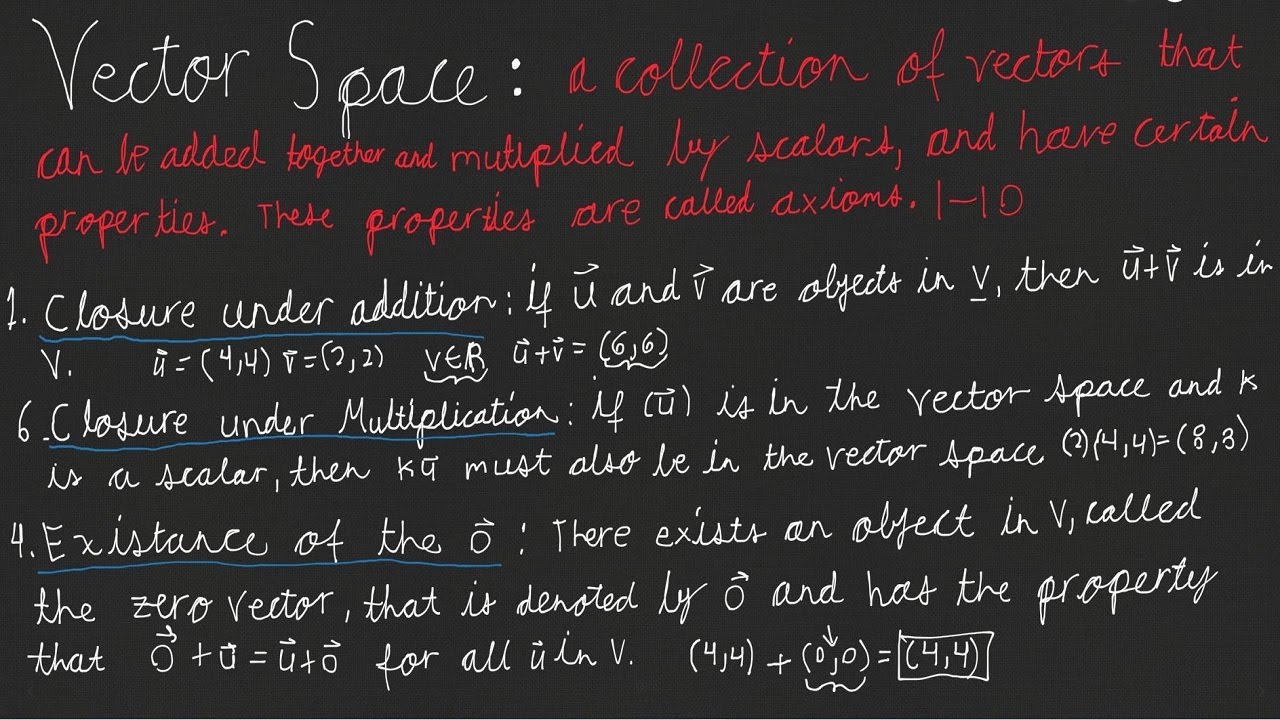 Vector Space: a collection of vectors that
can be added together and mutiplied by scalars, and have certain
properties. These properties are called axioms. 1-10
1. Closure under addition: if u⃗ and v⃗ are objects in V, then u⃗+v⃗ is in
V. u⃗=(4,4) v⃗=(2,2) V∈ℝ u⃗+v⃗=(6,6)
6. Closure under Multiplication: if (u⃗) is in the vector space and k
is a scalar, then ku⃗ must also be in the vector space (2)(4,4)=(8,8)
4. Existance of the 0⃗: There exists an object in V, called
the zero vector, that is denoted by 0⃗ and has the property
that 0⃗+u⃗=u⃗+0⃗ for all u⃗ in V. (4,4)+(0,0)=(4,4)